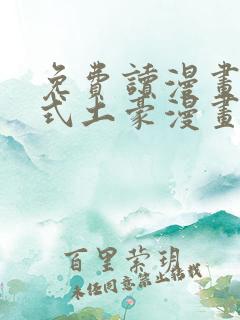 免費讀漫畫
式土豪漫畫
百里縈玥
未经同意禁止转载